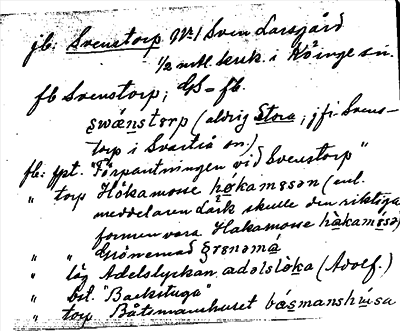 jb: Svenstorp Nr 1 Sven Larsgård
1/2 mtl. skuk. i Höinge sn.
fb Svenstorp; GS = fb.
swánstorp (aldrig Stora; jfr Svens-
torp i Svartrå sn.)
fbe: fpt. "Förpantningen vid Svenstorp"
" torp Hökamosse hǿkamɵsən (enl.
meddelaren Lärk skulle den riktiga
formen vara Hakamosse hàkamɵ́sə)
" " Grönemad
" läg. Adelslyckan adəlsløka (Adolf.)
" bit. "Backstuga"
" torp Båtsmanshuset básmanshúsa